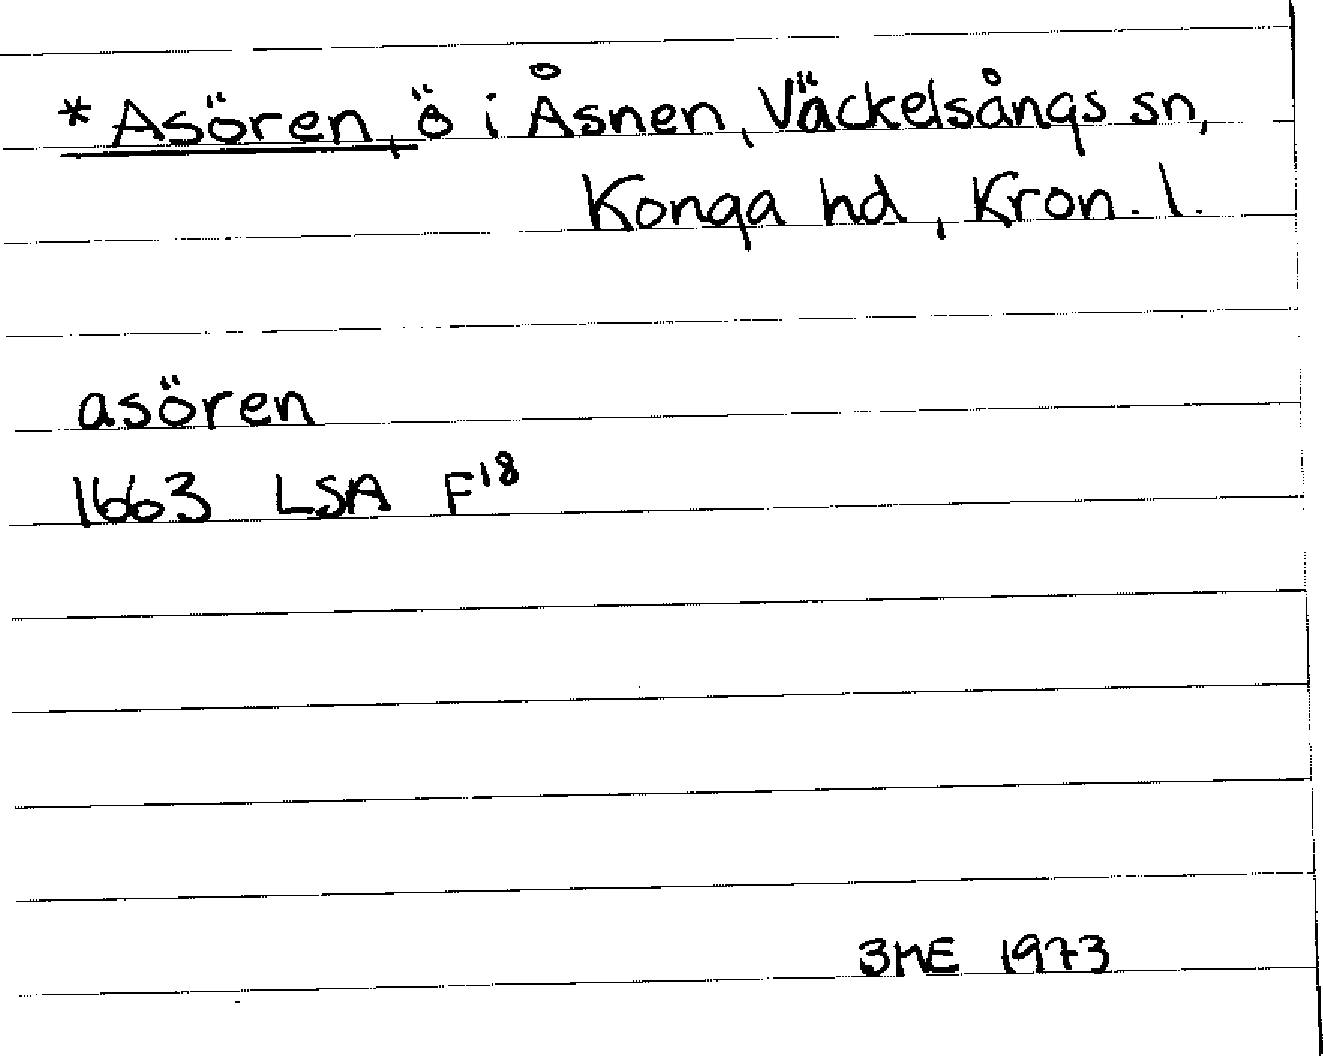 * Asören, ö i Åsnen, Väckelsångs sn,
Konga hd, Kron. l.
asören
1663 LSA F18
1973